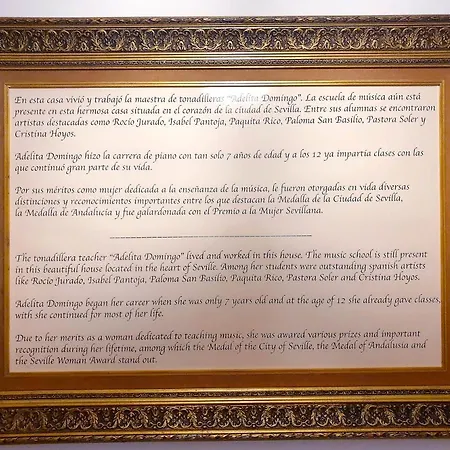 En esta casa vivió y trabajó la maestra de tonadilleras "Adelita Domingo". La escuela de música aún está
presente en esta hermosa casa situada en el corazón de la ciudad de Sevilla. Entre sus alumnas se encontraron
artistas destacadas como Rocío Jurado, Isabel Pantoja, Paquita Rico, Paloma San Basilio, Pastora Soler y
Cristina Hoyos.
Adelita Domingo hizo la carrera de piano con tan solo 7 años de edad y a los 12 ya impartía clases con las
que continuó gran parte de su vida.
Por sus méritos como mujer dedicada a la enseñanza de la música, le fueron otorgadas en vida diversas
distinciones y reconocimientos importantes entre los que destacan la Medalla de la Ciudad de Sevilla,
la Medalla de Andalucía y fue galardonada con el Premio a la Mujer Sevillana.
The tonadillera teacher "Adelita Domingo" lived and worked in this house. The music school is still present
in this beautiful house located in the heart of Seville. Among her students were outstanding spanish artists
like Rocío Jurado, Isabel Pantoja, Paloma San Basilio, Paquita Rico, Pastora Soler and Cristina Hoyos.
Adelita Domingo began her career when she was only 7 years old and at the age of 12 she already gave classes,
with she continued for most of her life.
Due to her merits as a woman dedicated to teaching music, she was awarded various prizes and important
recognition during her lifetime, among which the Medal of the City of Seville, the Medal of Andalusia and
the Seville Woman Award stand out.